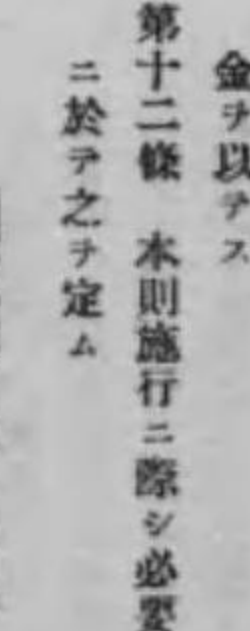 金ヲ以テス
第十二條　本則施行ニ際シ必要
ニ於テ之ヲ定ム